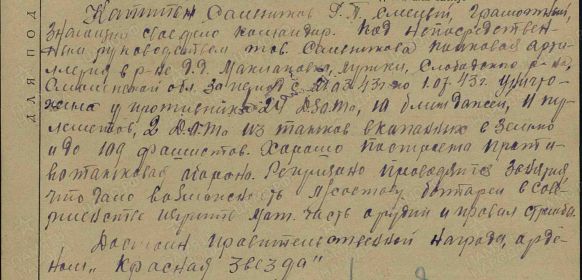 Капитан Саметиков Г.П. смелый, грамотный,
знающий свое дело командир. Под непосредствен-
ным руководством тов. Саметикова полковая арти-
ллерия в р-не д.д. Маклаково, Лужки, Слободского р-на,
Смоленской обл. за период с 43г. по 43г. уничто-
жила у противника ДЗОТа, 10 блиндажей, 11 пу-
леметов, 2 ДОТа из танков вкопанных в землю
и до 100 фашистов. Хорошо построена проти-
вотанковая оборона. Регулярно проводятся занятия,
что дало возможность л/составу батареи в сов-
ершенстве изучить мат. часть орудий и правил стрельбы.
Достоин правительственной награды, орде-
ном „Красная звезда"
ДЛЯ ПОД